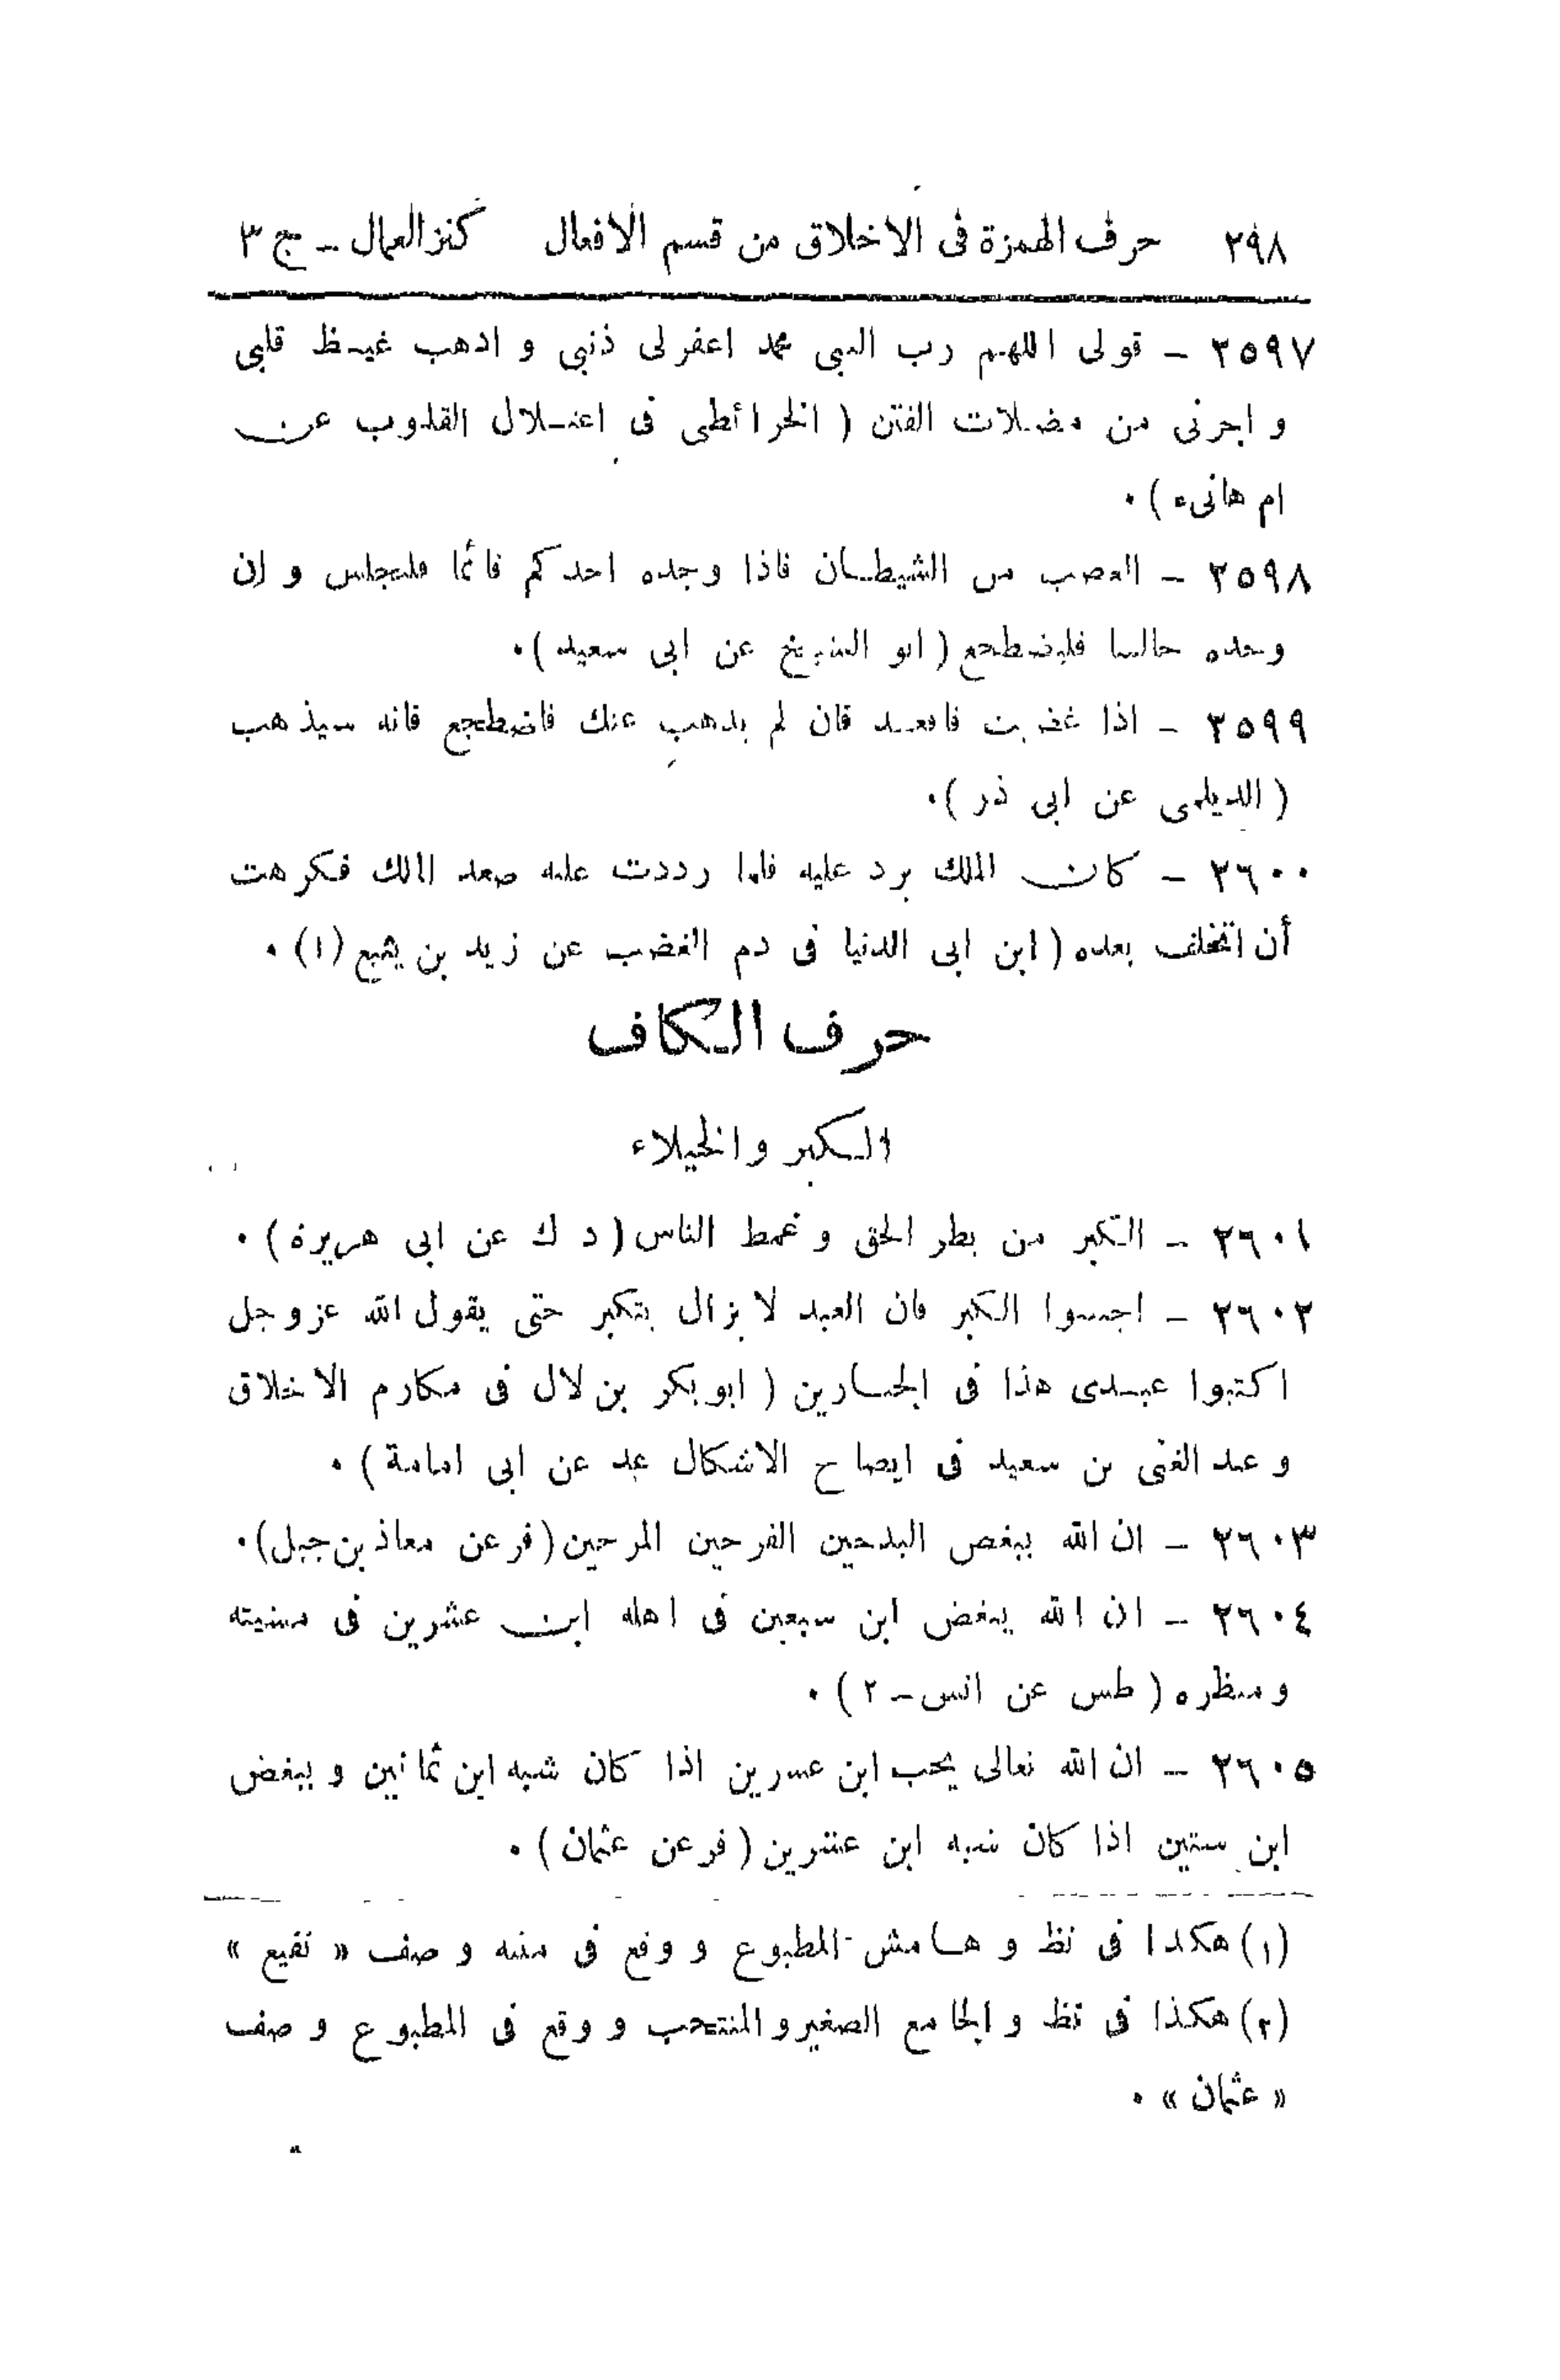 ٢٩٨ حرف الهمزة فى الاخلاق من قسم الافعال كنز العمال - ج ٣
٢٥٩٧ - قولى اللهم رب النبى محمد اغفر لى ذنبى و اذهب غيظ قلبى
و اجرنى من مضلات الفتن ( الخرائطى فى اعتلال القلوب عن
ام هانىء ) ٠
٢٥٩٨ - الغضب من الشيطان فاذا وجده احدكم قائما فليجلس و إن
وجده جالسا فليضطجع ( ابو الشيخ عن ابى سعيد ) ٠
٢٥٩٩ - اذا غضبت فاقعد فان لم يذهب عنك فاضطجع فانه سيذهب
( الديلمى عن ابى ذر ) ٠
٢٦٠٠ - كان الملك يرد عليه فلما رددت عليه صعد الملك فكرهت
أن اتخلف بعده ( ابن ابى الدنيا فى ذم الغضب عن زيد بن يثيع (١) ٠
حرف الكاف
الكبر والخيلاء
٢٦٠١ - الكبر من بطر الحق و غمط الناس ( د ك عن ابى هريرة ) ٠
٢٦٠٢ - اجتنبوا الكبر فان العبد لا يزال يتكبر حتى يقول الله عز و جل
اكتبوا عبدى هذا فى الجبارين ( ابو بكر بن لال فى مكارم الاخلاق
و عبد الغنى بن سعيد فى ايضاح الاشكال عد عن ابى امامة ) ٠
٢٦٠٣ - ان الله يبغض البذخين الفرحين المرحين ( فر عن معاذ بن جبل ) ٠
٢٦٠٤ - ان الله يبغض ابن سبعين فى اهله ابن عشرين فى مشيته
و منظره ( طس عن انس - ٢ ) ٠
٢٦٠٥ - ان الله تعالى يحب ابن عشرين اذا كان شبه ابن ثمانين و يبغض
ابن ستين اذا كان شبه ابن عشرين ( فر عن عثمان ) ٠
(١) هكذا فى نظ و هامش المطبوع و وقع فى متنه و صف « نقيع »
(٢) هكذا فى نظ و الجامع الصغير و المنتخب و وقع فى المطبوع و صف
« عثمان » ٠